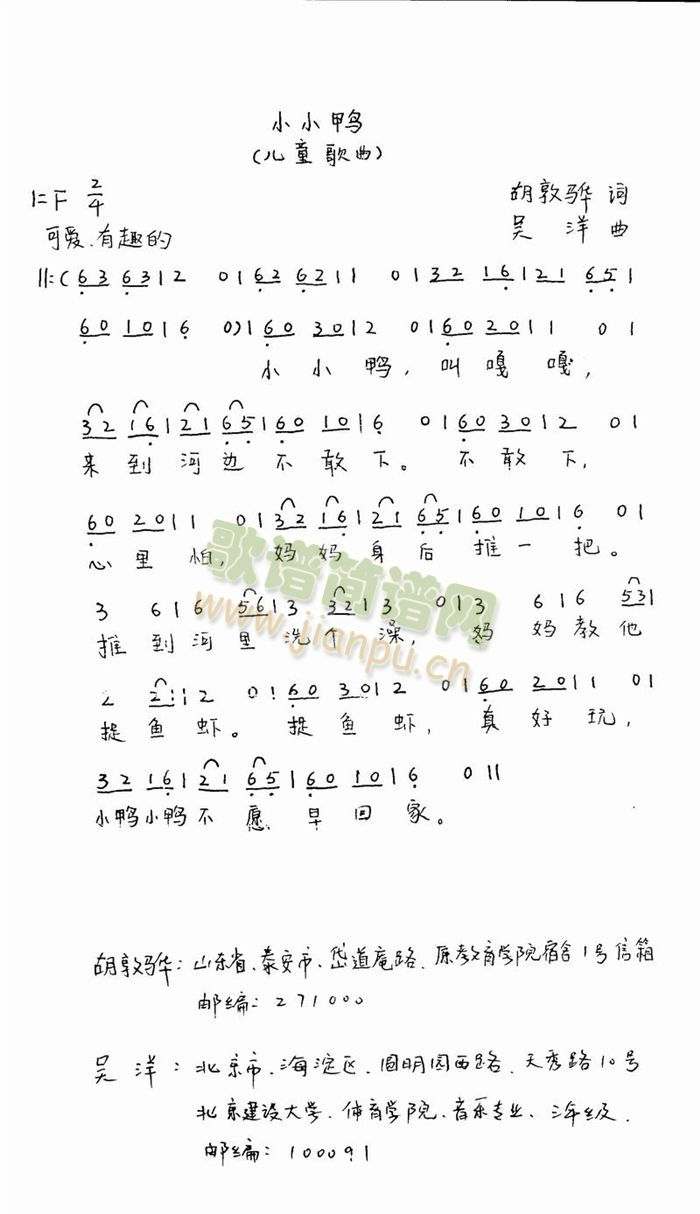 小小鸭
(儿童歌曲)
1=F 2/4
胡敦骅 词
可爱、有趣的
吴 洋 曲
‖:( 6 3 6 3 | 2 0 | 6 2 6 2 | 1 0 | 3 2 1 6 | 2 1 6 5 |
6 0 1 0 | 6 0) | 6 0 3 0 | 2 0 | 6 0 2 0 | 1 0 |
小 小 鸭, 叫 嘎 嘎,
3 2 1 6 | 2 1 6 5 | 6 0 1 0 | 6 0 | 6 0 3 0 | 2 0 |
来 到 河 边 不 敢 下。 不 敢 下,
6 0 2 0 | 1 0 | 3 2 1 6 | 2 1 6 5 | 6 0 1 0 | 6 0 |
心 里 怕, 妈 妈 身 后 推 一 把。
3 6 | 6 5 6 | 3 3 2 | 3 0 | 3 6 | 6 5 3 |
推 到 河 里 洗 个 澡, 妈 妈 教 他
2 2 1 | 2 0 | 6 0 3 0 | 2 0 | 6 0 2 0 | 1 0 |
捉 鱼 虾。 捉 鱼 虾, 真 好 玩,
3 2 1 6 | 2 1 6 5 | 6 0 1 0 | 6 0 ‖
小鸭小鸭不 愿 早 回 家。
歌谱简谱网
www.jianpu.cn
胡敦骅: 山东省、泰安市、岱道庵路、原教育学院宿舍1号信箱
邮编: 271000
吴 洋: 北京市、海淀区、圆明园西路、天秀路10号
北京建设大学、体育学院、音乐专业、三年级.
邮编: 100091